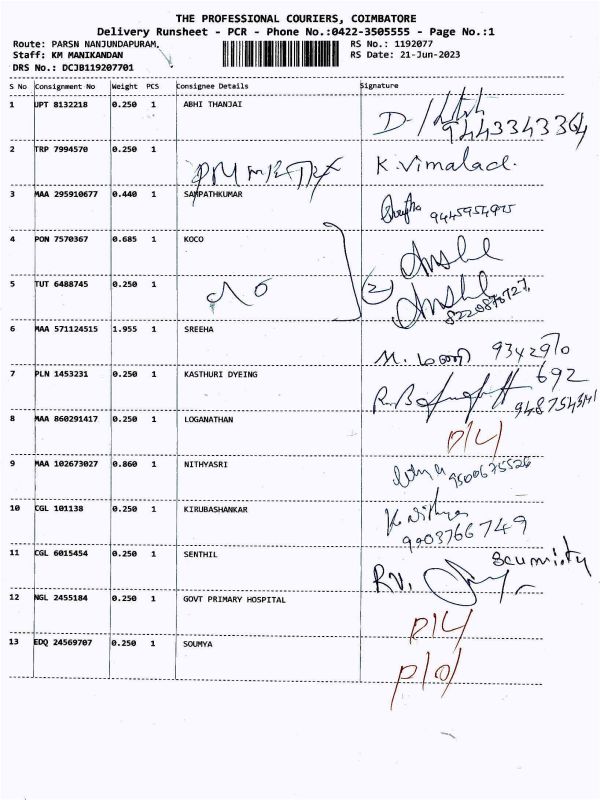 THE PROFESSIONAL COURIERS, COIMBATORE
Delivery Runsheet - PCR - Phone No.:0422-3505555 - Page No.:1
Route: PARSN NANJUNDAPURAM, RS No.: 1192077
Staff: KM MANIKANDAN RS Date: 21-Jun-2023
DRS No.: DCJB119207701
S No Consignment No Weight PCS Consignee Details Signature
1 UPT 8132218 0.250 1 ABHI THANJAI
9443343364
2 TRP 7994570 0.250 1 K. Vimala
3 MAA 295910677 0.440 1 SAMPATHKUMAR
4 PON 7570367 0.685 1 KOCO
5 TUT 6488745 0.250 1 NO 2
6 MAA 571124515 1.955 1 SREEHA
M. 9342970
7 PLN 1453231 0.250 1 KASTHURI DYEING 692
8 MAA 860291417 0.250 1 LOGANATHAN
D/L
9 MAA 102673027 0.860 1 NITHYASRI
9500675526
10 CGL 101138 0.250 1 KIRUBASHANKAR K. Nithya
9003766749
11 CGL 6015454 0.250 1 SENTHIL
RV.
12 NGL 2455184 0.250 1 GOVT PRIMARY HOSPITAL
D/L
13 EDQ 24569707 0.250 1 SOUMYA